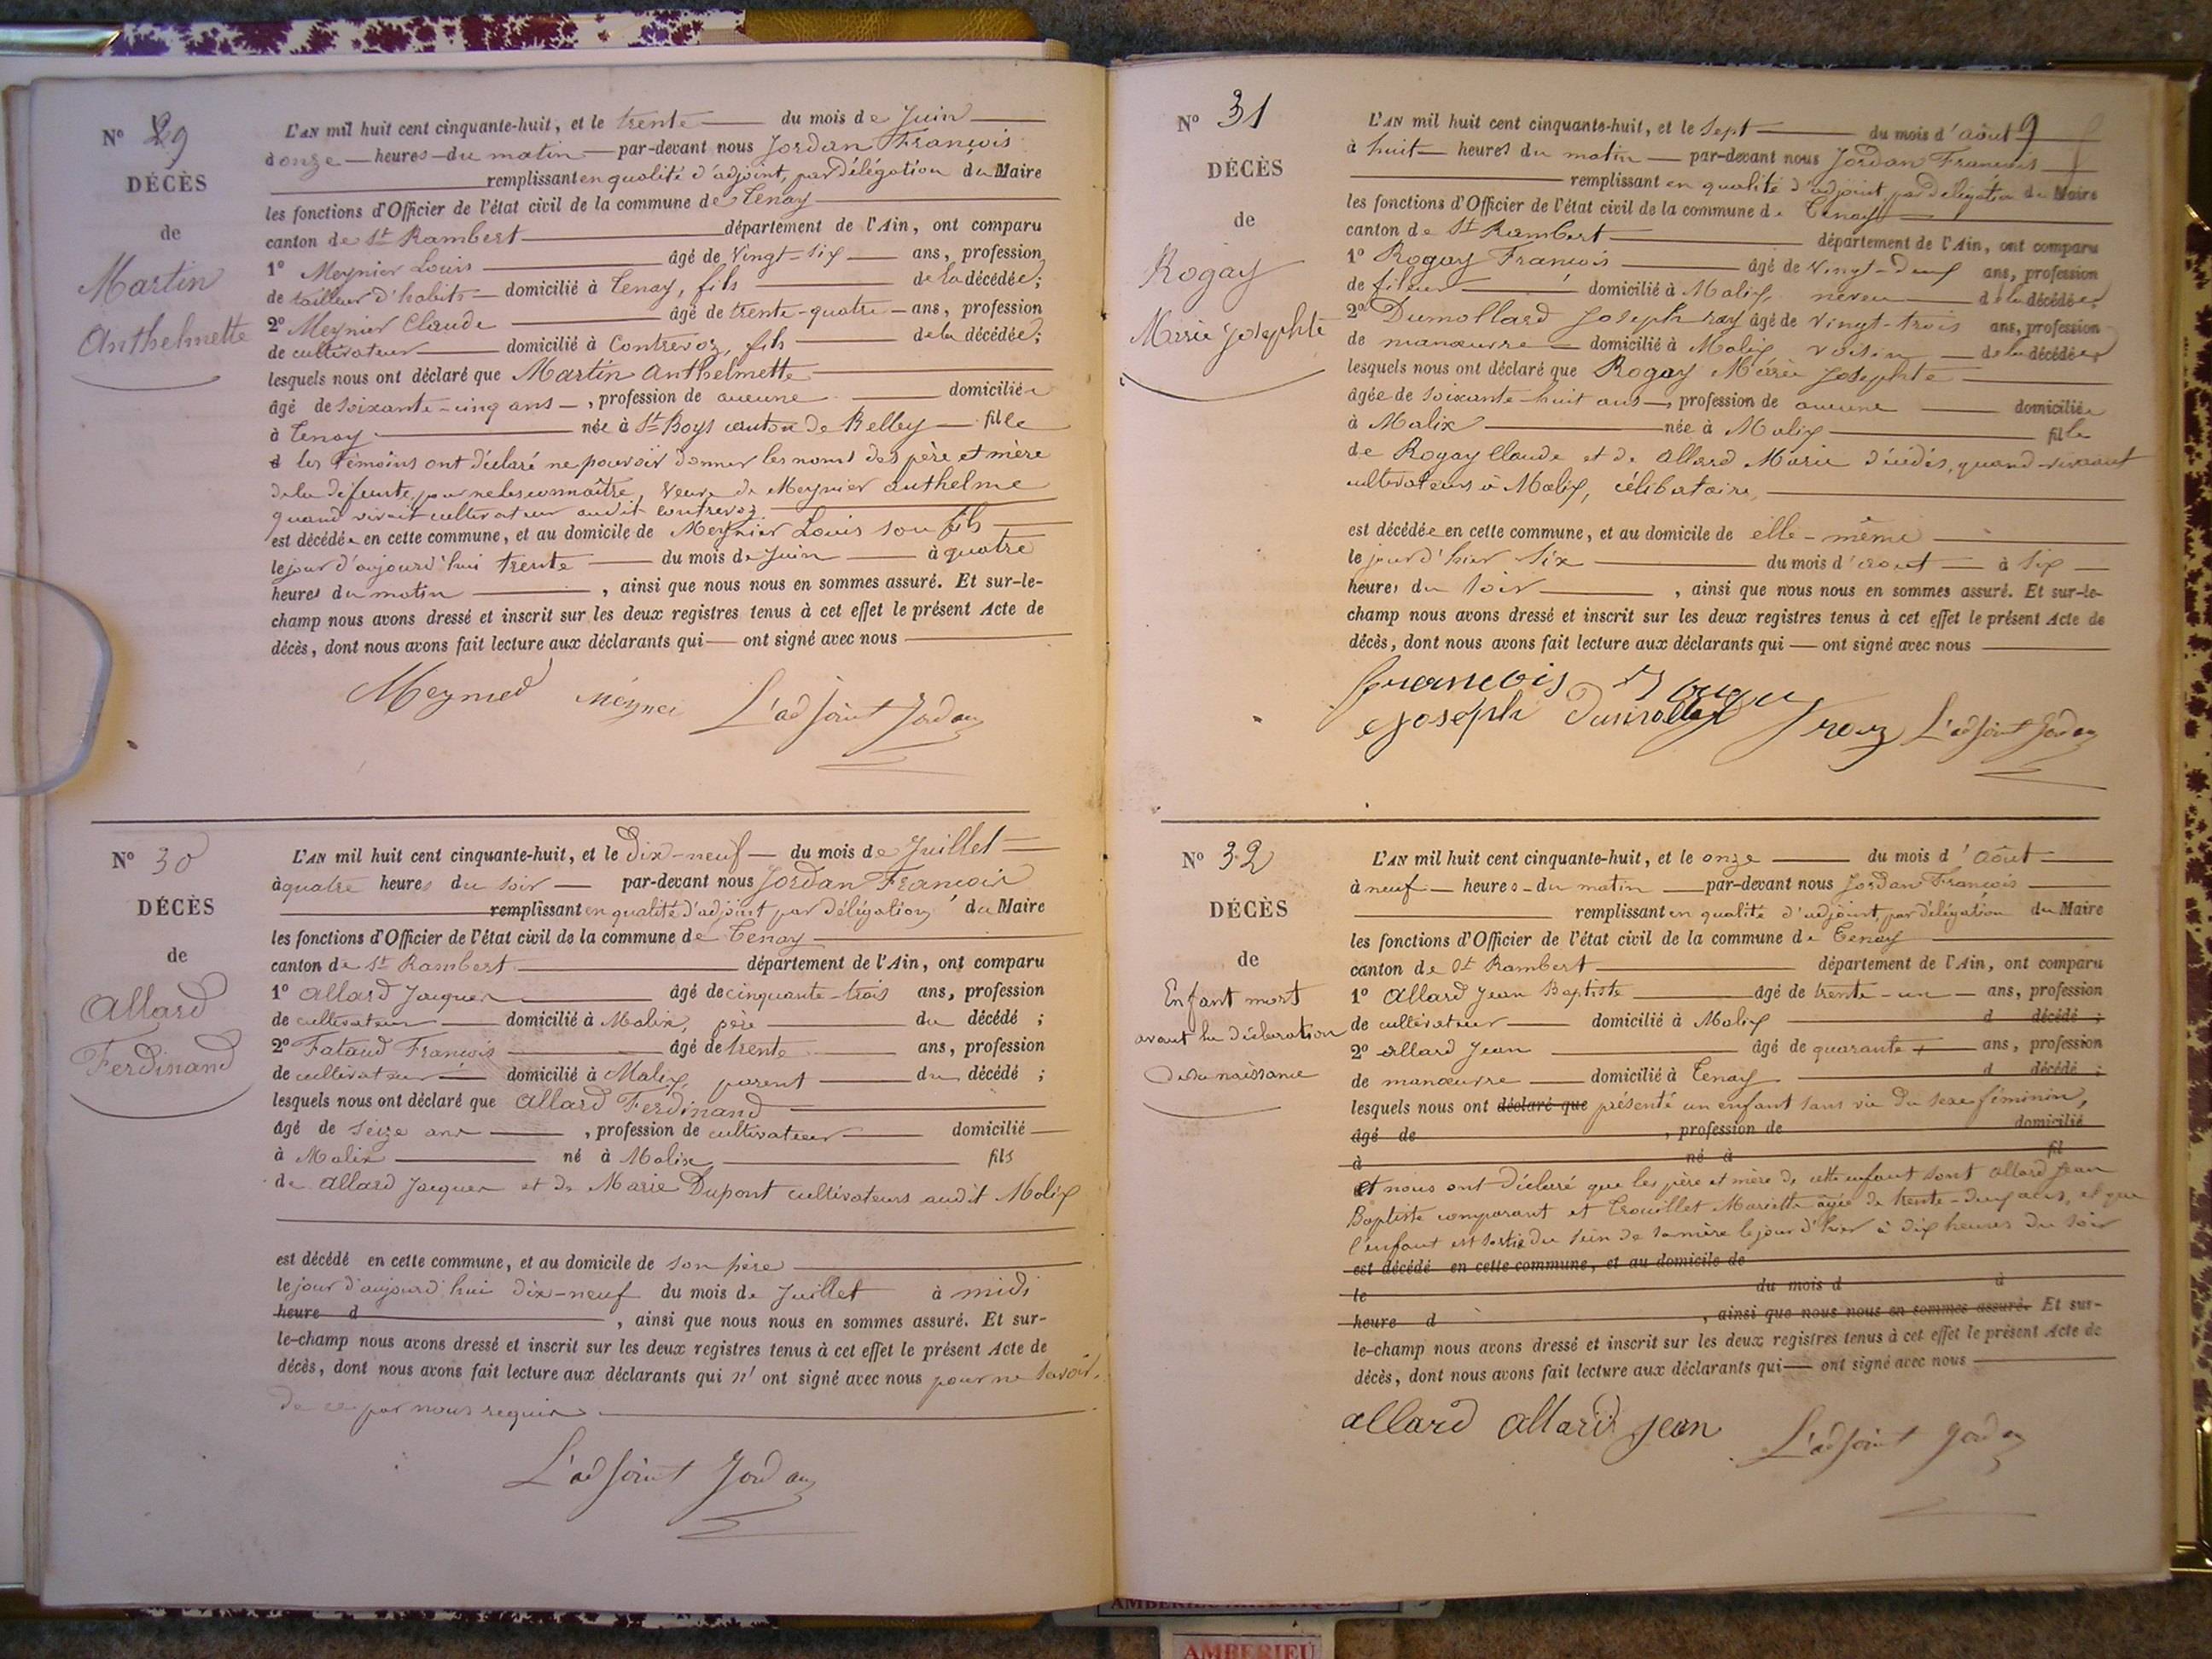 N° 29
DÉCÈS
de
Martin
Anthelmette
L'AN mil huit cent cinquante-huit, et le trente du mois de Juin
à onze heures du matin par-devant nous Jordan François
remplissant en qualité d'adjoint, par délégation du Maire
les fonctions d'Officier de l'état civil de la commune de Tenay
canton de St Rambert département de l'Ain, ont comparu
1° Meynier Louis âgé de Vingt-six ans, profession
de tailleur d'habits domicilié à Tenay, fils de la décédée;
2° Meynier Claude âgé de trente-quatre ans, profession
de cultivateur domicilié à Contrevoz, fils de la décédée;
lesquels nous ont déclaré que Martin Anthelmette
âgé de soixante-cinq ans, profession de aucune domiciliée
à Tenay née à St Boys canton de Belley fille
d les témoins ont déclaré ne pouvoir donner les noms des père et mère
de la défunte, pour ne les connaître, Veuve de Meynier Anthelme
quand vivait cultivateur audit Contrevoz
est décédée en cette commune, et au domicile de Meynier Louis son fils
le jour d'aujourd'hui trente du mois de Juin à quatre
heures du matin, ainsi que nous nous en sommes assuré. Et sur-le-
champ nous avons dressé et inscrit sur les deux registres tenus à cet effet le présent Acte de
décès, dont nous avons fait lecture aux déclarants qui ont signé avec nous
L'adjoint Jordan
N° 30
DÉCÈS
de
Allard
Ferdinand
L'AN mil huit cent cinquante-huit, et le Dix-neuf du mois de Juillet
à quatre heures du soir par-devant nous Jordan François
remplissant en qualité d'adjoint par délégation du Maire
les fonctions d'Officier de l'état civil de la commune de Tenay
canton de St Rambert département de l'Ain, ont comparu
1° Allard Jacques âgé de cinquante-trois ans, profession
de cultivateur domicilié à Malix, père du décédé ;
2° Fataud François âgé de trente ans, profession
de cultivateur domicilié à Malix, parent du décédé ;
lesquels nous ont déclaré que Allard Ferdinand
âgé de seize ans, profession de cultivateur domicilié
à Malix né à Malix fils
de Allard Jacques et de Marie Dupont cultivateurs audit Malix
est décédé en cette commune, et au domicile de son père
le jour d'aujourd'hui dix-neuf du mois de Juillet à midi
heure d, ainsi que nous nous en sommes assuré. Et sur-
le-champ nous avons dressé et inscrit sur les deux registres tenus à cet effet le présent Acte de
décès, dont nous avons fait lecture aux déclarants qui n'ont signé avec nous pour ne savoir,
de ce par nous requis
L'adjoint Jordan
N° 31
DÉCÈS
de
Rogay
Marie Josephte
L'AN mil huit cent cinquante-huit, et le Sept du mois d'août 9
à huit heures du matin par-devant nous Jordan François
remplissant en qualité d'adjoint, par délégation du Maire
les fonctions d'Officier de l'état civil de la commune de Tenay
canton de St Rambert département de l'Ain, ont comparu
1° Rogay François âgé de Vingt-deux ans, profession
de fileur domicilié à Malix, neveu de la décédée;
2° Dumollard Joseph âgé de Vingt-trois ans, profession
de manœuvre domicilié à Malix voisin de la décédée;
lesquels nous ont déclaré que Rogay Marie Josephte
âgée de soixante-huit ans, profession de aucune domiciliée
à Malix née à Malix fille
de Rogay Claude et de Allard Marie décédés, quand vivaient
cultivateurs à Malix, célibataire,
est décédée en cette commune, et au domicile de elle-même
le jour d'hier six du mois d'août à six
heures du soir, ainsi que nous nous en sommes assuré. Et sur-le-
champ nous avons dressé et inscrit sur les deux registres tenus à cet effet le présent Acte de
décès, dont nous avons fait lecture aux déclarants qui ont signé avec nous
François Rogay
Joseph Dumollard L'adjoint Jordan
N° 32
DÉCÈS
de
Enfant mort
avant la déclaration
de sa naissance
L'AN mil huit cent cinquante-huit, et le onze du mois d'Août
à neuf heures du matin par-devant nous Jordan François
remplissant en qualité d'adjoint, par délégation du Maire
les fonctions d'Officier de l'état civil de la commune de Tenay
canton de St Rambert département de l'Ain, ont comparu
1° Allard Jean Baptiste âgé de trente-un ans, profession
de cultivateur domicilié à Malix d décédé ;
2° Allard Jean âgé de quarante ans, profession
de manœuvre domicilié à Tenay d décédé ;
lesquels nous ont déclaré que présenté un enfant sans vie du sexe féminin,
âgé de, profession de domicilié
à né à fil
et nous ont déclaré que les père et mère de cette enfant sont Allard Jean
Baptiste comparant et Trouillet Mariette âgée de trente-deux ans, et que
l'enfant est sortie du sein de sa mère le jour d'hier à dix heures du soir
est décédé en cette commune, et au domicile de
le du mois d à
heure d, ainsi que nous nous en sommes assuré. Et sur-
le-champ nous avons dressé et inscrit sur les deux registres tenus à cet effet le présent Acte de
décès, dont nous avons fait lecture aux déclarants qui ont signé avec nous
allard allard jean L'adjoint Jordan
AMBERIEU